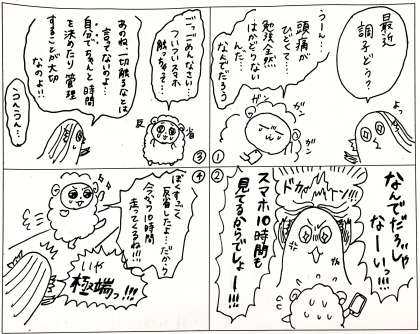 ①
最近
調子どう？
うーん…
頭痛が
ひどくて…
勉強全然
はかどらない
んだ
なんでだろう
ガン
ガン
ガン
②
なんでだろうじゃ
なーいっ!!!
スマホ10時間も
見てるからでしょー!!!
③
ごっごめんなさい…
ついついスマホ
触っちゃって…
反
省
あのね、一切触るなとは
言ってないのよ！
自分でちゃんと時間
を決めたり管理
することが大切
なのよ!!
うんうん…
④
ぼくすっごく
反省したよ…だから
今から10時間
走ってくるね!!!
いや
極端っ!!!